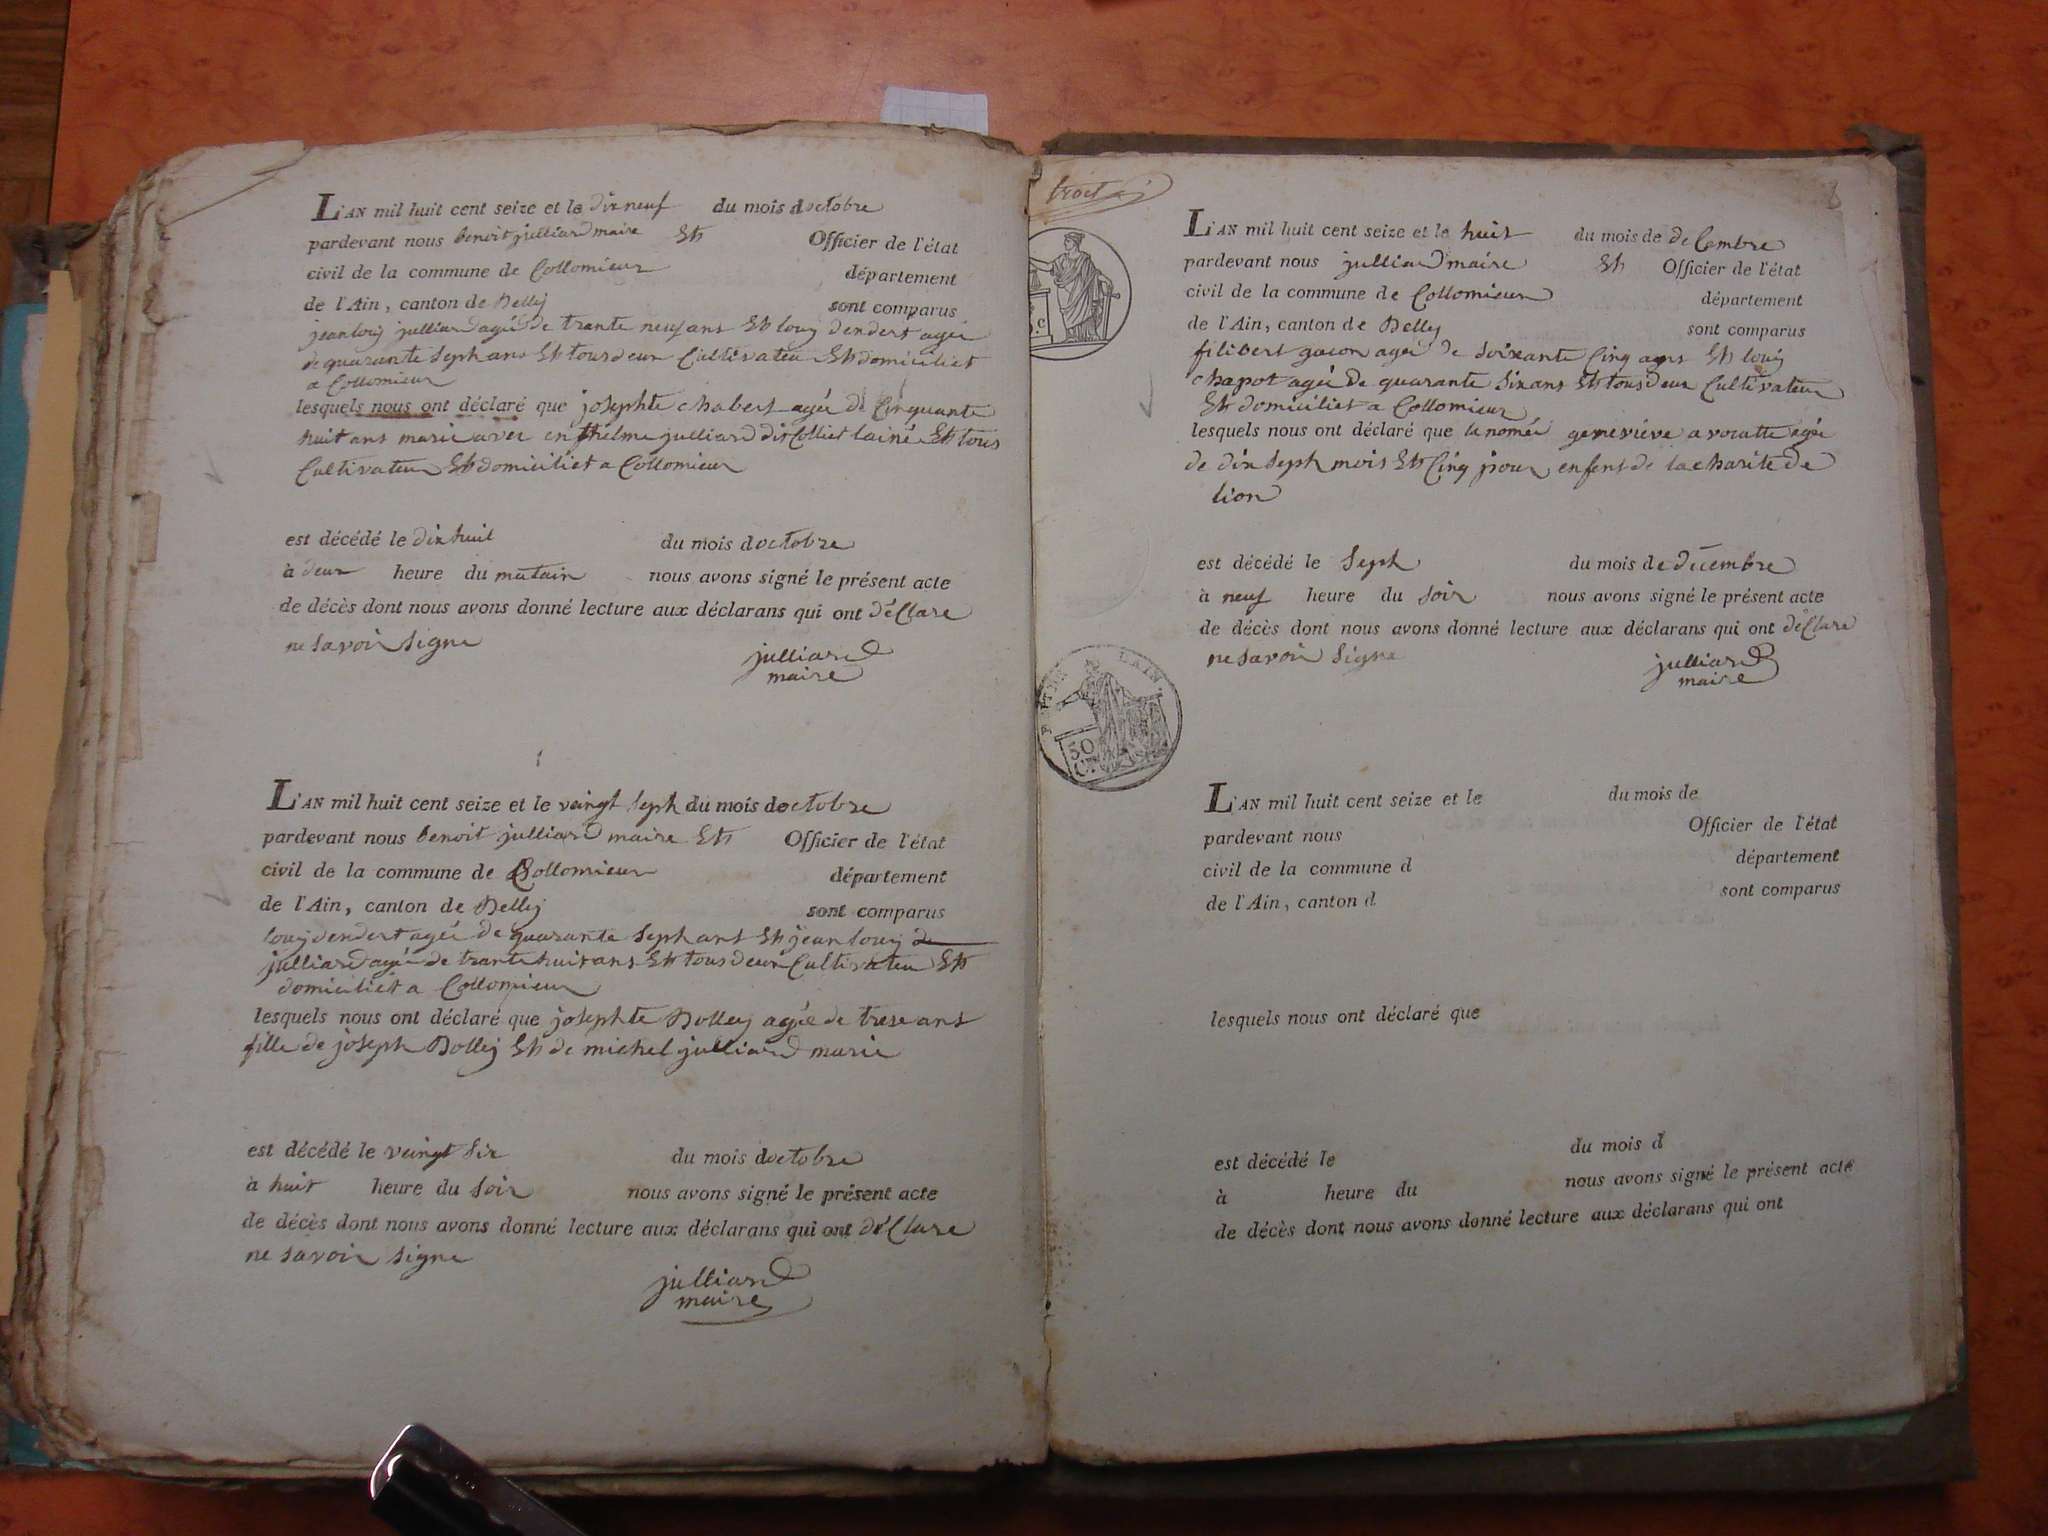 L'AN mil huit cent seize et le dix neuf du mois doctobre
pardevant nous benoit julliard maire Et Officier de l'état
civil de la commune de Collomieux département
de l'Ain, canton de Belley sont comparus
jean louis julliard agée de trante neuf ans Et louis dendert agée
de quarante sept ans Et tous deux Cultivateur Et domiciliet
a Collomieux
lesquels nous ont déclaré que josephte chabert agée de Cinquante
huit ans marie avec enthelme julliard dit Colliet lainé Et tous
Cultivateur Et domiciliet a Collomieux
est décédé le dix huit du mois doctobre
à deux heure du matain nous avons signé le présent acte
de décès dont nous avons donné lecture aux déclarans qui ont déClare
ne savoir signe
julliard
maire
L'AN mil huit cent seize et le veingt sept du mois doctobre
pardevant nous benoit julliard maire Et Officier de l'état
civil de la commune de Collomieux département
de l'Ain, canton de Belley sont comparus
louis dendert agée de quarante sept ans Et jean louis de
julliard agée de trante huit ans Et tous deux Cultivateur Et
domiciliet a Collomieux
lesquels nous ont déclaré que josephte Bolley agée de trese ans
fille de joseph Bolley Et de michel julliard marie
est décédé le veingt six du mois doctobre
à huit heure du soir nous avons signé le présent acte
de décès dont nous avons donné lecture aux déclarans qui ont déClare
ne savoir signe
julliard
maire
8
L'AN mil huit cent seize et le huit du mois de deCembre
pardevant nous julliard maire Et Officier de l'état
civil de la commune de Collomieux département
de l'Ain, canton de Belley sont comparus
filibert gacon agée de soixante Cinq ans Et louis
chapot agée de quarante six ans Et tous deux Cultivateur
Et domiciliet a Collomieux
lesquels nous ont déclaré que la nomée geneviève avocatte agée
de dix sept mois Et Cinq jour enfent de la charite de
lion
est décédé le sept du mois de décembre
à neuf heure du soir nous avons signé le présent acte
de décès dont nous avons donné lecture aux déclarans qui ont déClare
ne savoir signe
julliard
maire
L'AIN
50
C.
L'AN mil huit cent seize et le du mois de
pardevant nous Officier de l'état
civil de la commune d département
de l'Ain, canton d sont comparus
lesquels nous ont déclaré que
est décédé le du mois d
à heure du nous avons signé le présent acte
de décès dont nous avons donné lecture aux déclarans qui ont